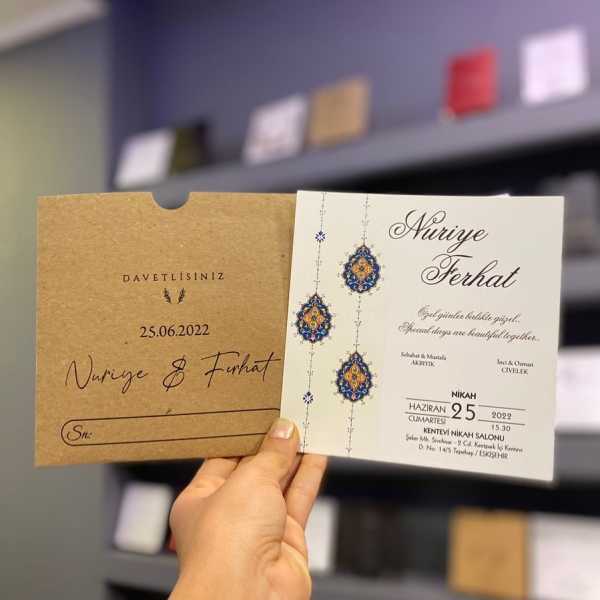 DAVETLİSİNİZ
25.06.2022
Nuriye & Ferhat
Sn:
Nuriye
Ferhat
Özel günler birlikte güzel..
Special days are beautiful together..
Sebahat & Mustafa
AKBIYIK
İnci & Osman
CİVELEK
NİKAH
HAZİRAN 25 2022
CUMARTESİ 15.30
KENTEVİ NİKAH SALONU
Şeker Mh. Sivrihisar - 2 Cd. Kentpark İçi Kentevi
D. No: 14/5 Tepebaşı / ESKİŞEHİR